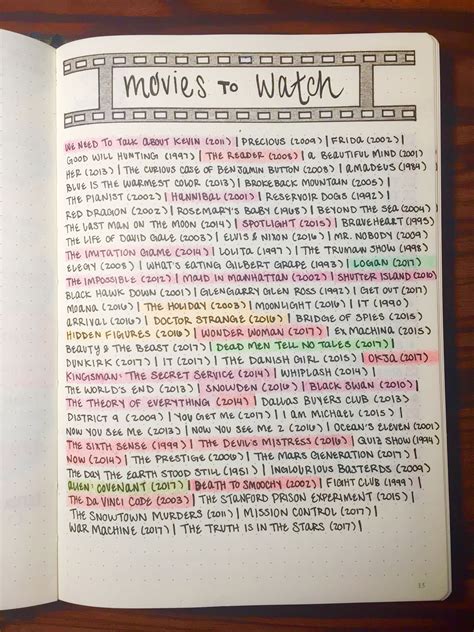 movies to watch
WE NEED TO TALK ABOUT KEVIN (2011) | PRECIOUS (2009) | FRIDA (2002) |
GOOD WILL HUNTING (1997) | THE READER (2008) | A BEAUTIFUL MIND (2001)
HER (2013) | THE CURIOUS CASE OF BENJAMIN BUTTON (2008) | AMADEUS (1984)
BLUE IS THE WARMEST COLOR (2013) | BROKEBACK MOUNTAIN (2005) |
THE PIANIST (2002) | HANNIBAL (2001) | RESERVOIR DOGS (1992) |
RED DRAGON (2002) | ROSEMARY'S BABY (1968) | BEYOND THE SEA (2004) |
THE LAST MAN ON THE MOON (2014) | SPOTLIGHT (2015) | BRAVEHEART (1995)
THE LIFE OF DAVID GALE (2003) | ELVIS & NIXON (2016) | MR. NOBODY (2009)
THE IMITATION GAME (2014) | LOLITA (1997) | THE TRUMAN SHOW (1998)
ELEGY (2008) | WHAT'S EATING GILBERT GRAPE (1993) | LOGAN (2017) |
THE IMPOSSIBLE (2012) | MAID IN MANHATTAN (2002) | SHUTTER ISLAND (2010)
BLACK HAWK DOWN (2001) | GLENGARRY GLEN ROSS (1992) | GET OUT (2017)
MOANA (2016) | THE HOLIDAY (2003) | MOONLIGHT (2016) | IT (1990)
ARRIVAL (2016) | DOCTOR STRANGE (2016) | BRIDGE OF SPIES (2015)
HIDDEN FIGURES (2016) | WONDER WOMAN (2017) | EX MACHINA (2015)
BEAUTY & THE BEAST (2017) | DEAD MEN TELL NO TALES (2017) |
DUNKIRK (2017) | IT (2017) | THE DANISH GIRL (2015) | OKJA (2017)
KINGSMAN: THE SECRET SERVICE (2014) | WHIPLASH (2014) |
THE WORLD'S END (2013) | SNOWDEN (2016) | BLACK SWAN (2010) |
THE THEORY OF EVERYTHING (2014) | DALLAS BUYERS CLUB (2013)
DISTRICT 9 (2009) | YOU GET ME (2017) | I AM MICHAEL (2015) |
NOW YOU SEE ME (2013) | NOW YOU SEE ME 2 (2016) | OCEAN'S ELEVEN (2001)
THE SIXTH SENSE (1999) | THE DEVIL'S MISTRESS (2016) | QUIZ SHOW (1994)
NOW (2014) | THE PRESTIGE (2006) | THE MARS GENERATION (2017) |
THE DAY THE EARTH STOOD STILL (1951) | INGLOURIOUS BASTERDS (2009)
ALIEN: COVENANT (2017) | DEATH TO SMOOCHY (2002) | FIGHT CLUB (1999) |
THE DA VINCI CODE (2003) | THE STANFORD PRISON EXPERIMENT (2015) |
THE SNOWTOWN MURDERS (2011) | MISSION CONTROL (2017) |
WAR MACHINE (2017) | THE TRUTH IS IN THE STARS (2017) |